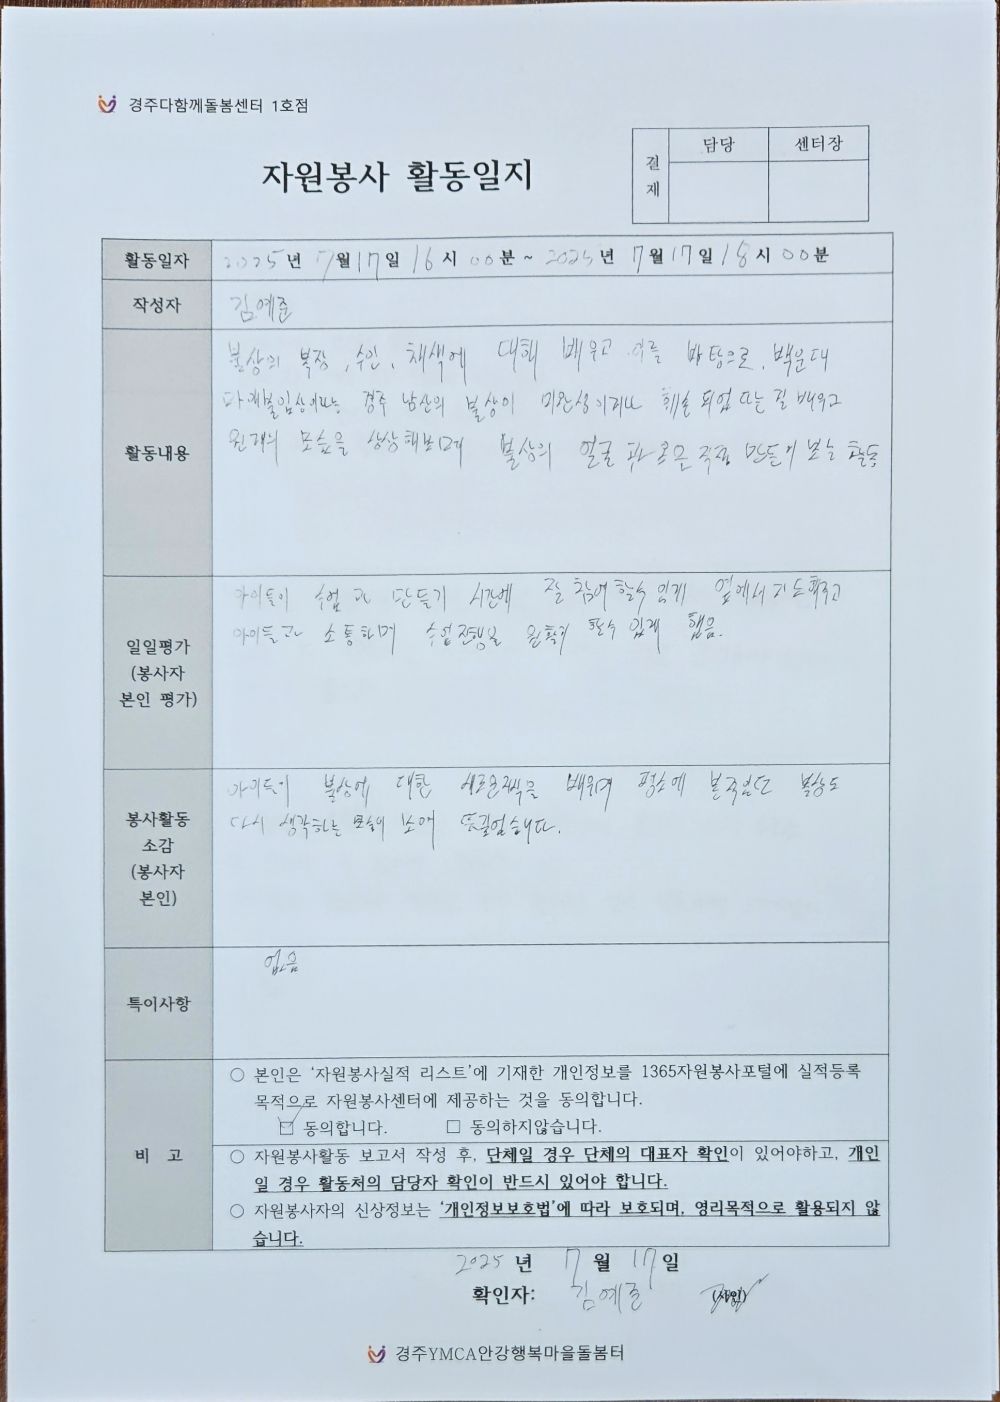 경주다함께돌봄센터 1호점
자원봉사 활동일지
결재 담당 센터장
활동일자 2025년 7월 17일 16시 00분 ~ 2025년 7월 17일 18시 00분
작성자 김예준
활동내용
불상의 복장, 수인, 채색에 대해 배우고 이를 바탕으로, 백운대
마애불입상이라는 경주 남산의 불상이 미완성이거나 훼손 되었 또는 걸 배우고
원래의 모습을 상상해보며 불상의 얼굴 직접 만들어 보는 활동
일일평가
(봉사자
본인 평가)
아이들이 수업과 만들기 시간에 잘 참여할수 있게 옆에서 지도해주고
아이들과 소통하며 수업진행을 원활히 할수 있게 했음.
봉사활동
소감
(봉사자
본인)
아이들이 불상에 대한 새로운 지식을 배우며 평소에 본적있던 불상도
다시 생각하는 모습이 보여 뜻깊었습니다.
특이사항 없음
비 고
○ 본인은 '자원봉사실적 리스트'에 기재한 개인정보를 1365자원봉사포털에 실적등록
목적으로 자원봉사센터에 제공하는 것을 동의합니다.
☑ 동의합니다. □ 동의하지않습니다.
○ 자원봉사활동 보고서 작성 후, 단체일 경우 단체의 대표자 확인이 있어야하고, 개인
일 경우 활동처의 담당자 확인이 반드시 있어야 합니다.
○ 자원봉사자의 신상정보는 '개인정보보호법'에 따라 보호되며, 영리목적으로 활용되지 않
습니다.
2025 년 7 월 17 일
확인자: 김예준 (사인)
경주YMCA안강행복마을돌봄터